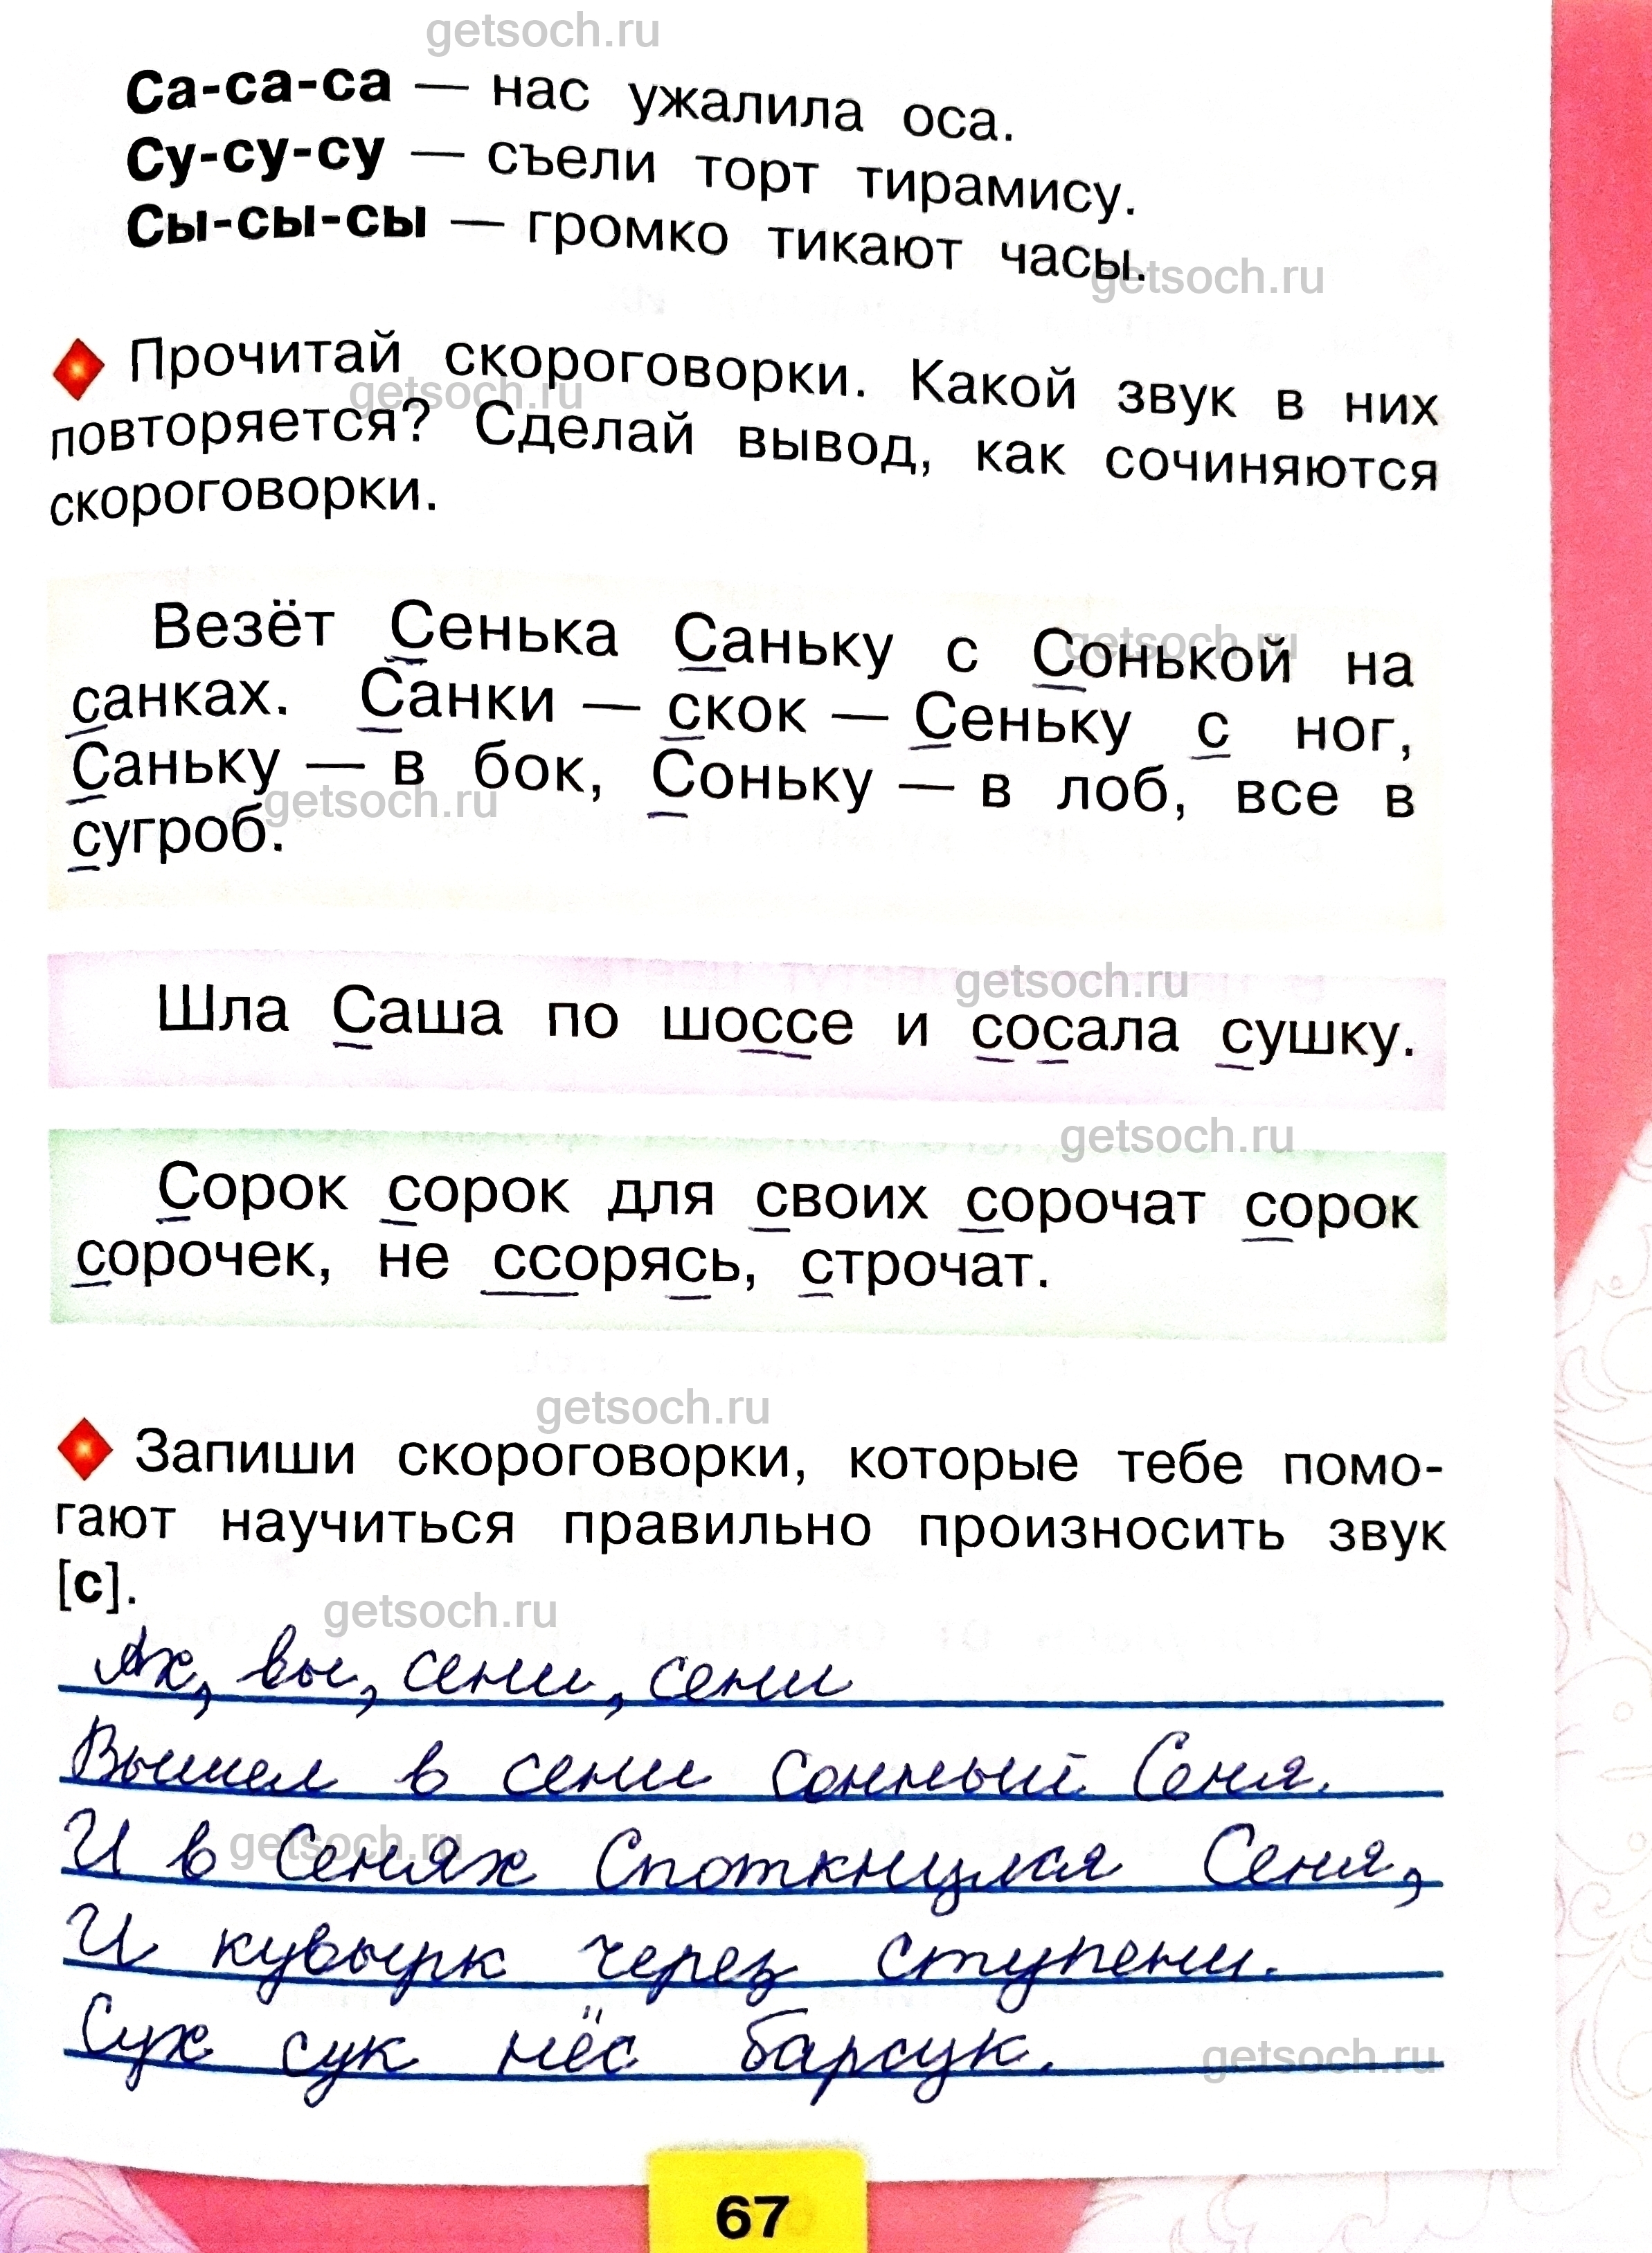 getsoch.ru
Са-са-са — нас ужалила оса.
Су-су-су — съели торт тирамису.
Сы-сы-сы — громко тикают часы.
getsoch.ru
Прочитай скороговорки. Какой звук в них
getsoch.ru
повторяется? Сделай вывод, как сочиняются
скороговорки.
Везёт Сенька Саньку с Сонькой на
getsoch.ru
санках. Санки — скок — Сеньку с ног,
Саньку — в бок, Соньку — в лоб, все в
getsoch.ru
сугроб.
getsoch.ru
Шла Саша по шоссе и сосала сушку.
getsoch.ru
Сорок сорок для своих сорочат сорок
сорочек, не ссорясь, строчат.
getsoch.ru
Запиши скороговорки, которые тебе помо-
гают научиться правильно произносить звук
[с].
getsoch.ru
Ах, вы, сени, сени
Вышел в сени сонный Сеня.
getsoch.ru
И в Сенях Споткнулся Сеня,
И кувырк через ступени.
Сук сук нёс барсук.
getsoch.ru
67